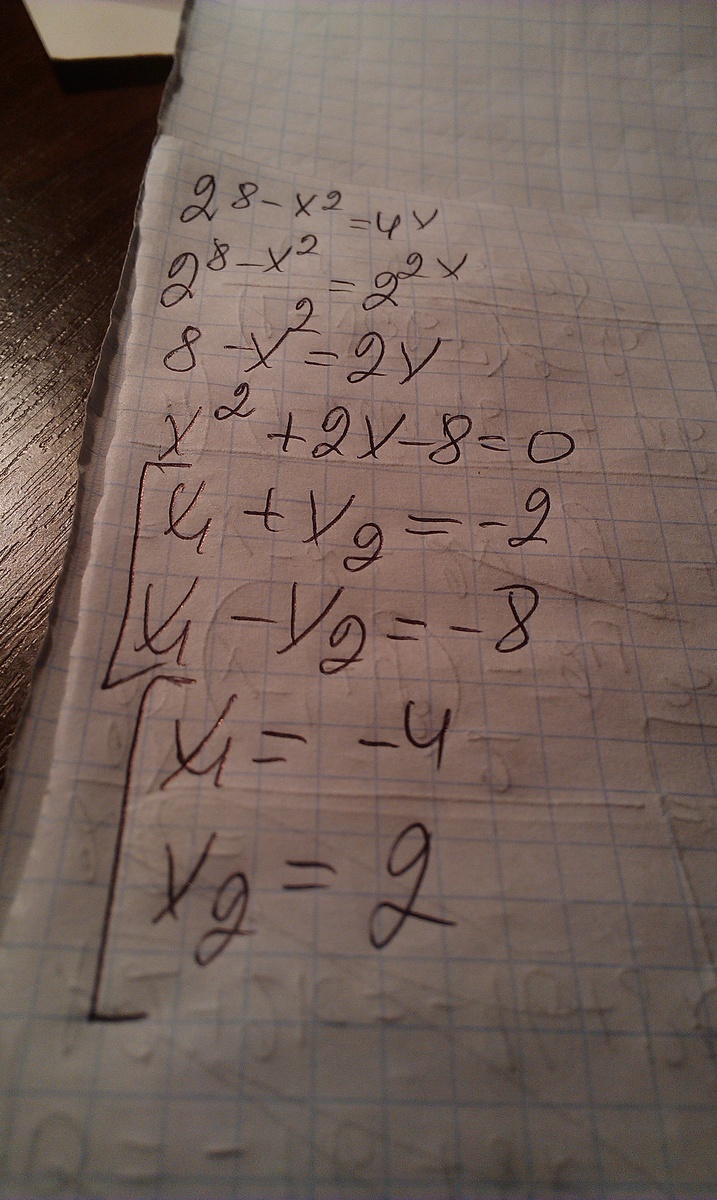 2^{8-x^2} = 4^x
2^{8-x^2} = 2^{2x}
8 - x^2 = 2x
x^2 + 2x - 8 = 0
[ x_1 + x_2 = -2
x_1 - x_2 = -8
[ x_1 = -4
x_2 = 2